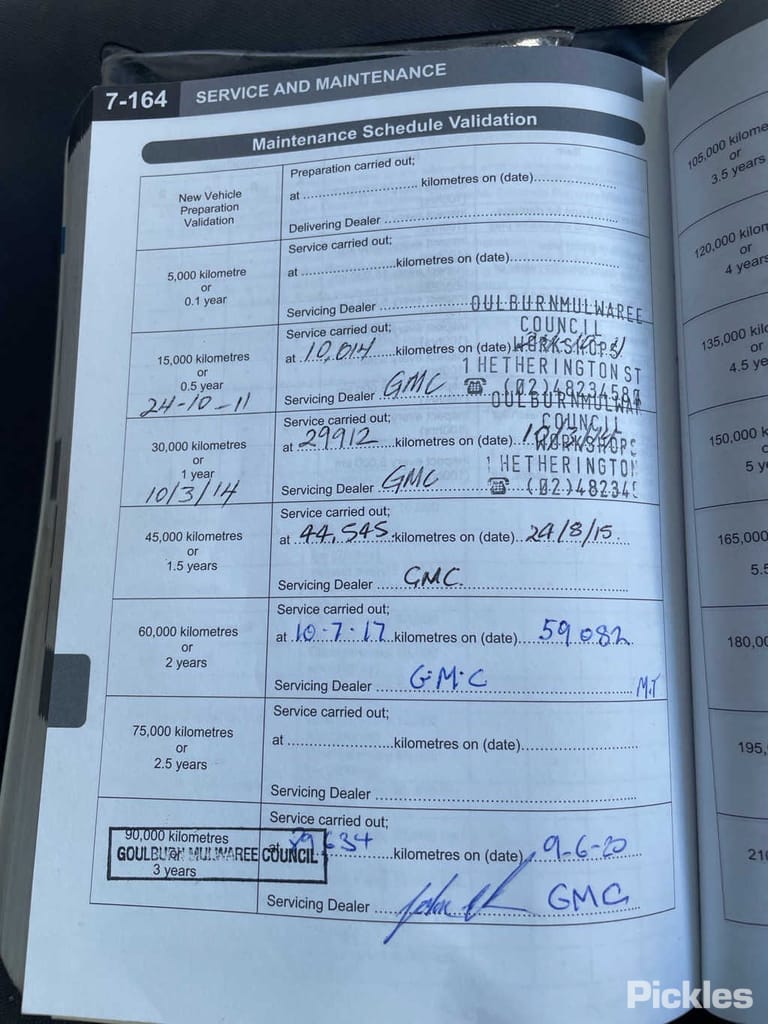 7-164 SERVICE AND MAINTENANCE
Maintenance Schedule Validation
New Vehicle
Preparation
Validation
Preparation carried out;
at ........ kilometres on (date)........
Delivering Dealer ........
5,000 kilometre
or
0.1 year
Service carried out;
at ........kilometres on (date)........
Servicing Dealer ........
OULBURNMULWAREE
COUNCIL
WORKSHOPS
1 HETHERINGTON ST
☎ (02)4823458
15,000 kilometres
or
0.5 year
24-10-11
Service carried out;
at 10,014 kilometres on (date)
Servicing Dealer GMC
OULBURNMULWAR
COUNCIL
WORKSHOPS
1 HETHERINGTON
☎ (02)48234
30,000 kilometres
or
1 year
10/3/14
Service carried out;
at 29912 kilometres on (date)
Servicing Dealer GMC
45,000 kilometres
or
1.5 years
Service carried out;
at 44,545 kilometres on (date) 24/8/15
Servicing Dealer GMC
60,000 kilometres
or
2 years
Service carried out;
at 10-7-17 kilometres on (date) 59082
Servicing Dealer G.M.C M.T
75,000 kilometres
or
2.5 years
Service carried out;
at ........kilometres on (date)........
Servicing Dealer ........
90,000 kilometres
or
3 years
GOULBURN MULWAREE COUNCIL
Service carried out;
at 79634 kilometres on (date) 9-6-20
Servicing Dealer GMC
105,000 kilome
or
3.5 years
120,000 kilom
or
4 years
135,000 kilo
or
4.5 ye
150,000 k
5 ye
165,000
5.5
180,00
195,
210
Pickles